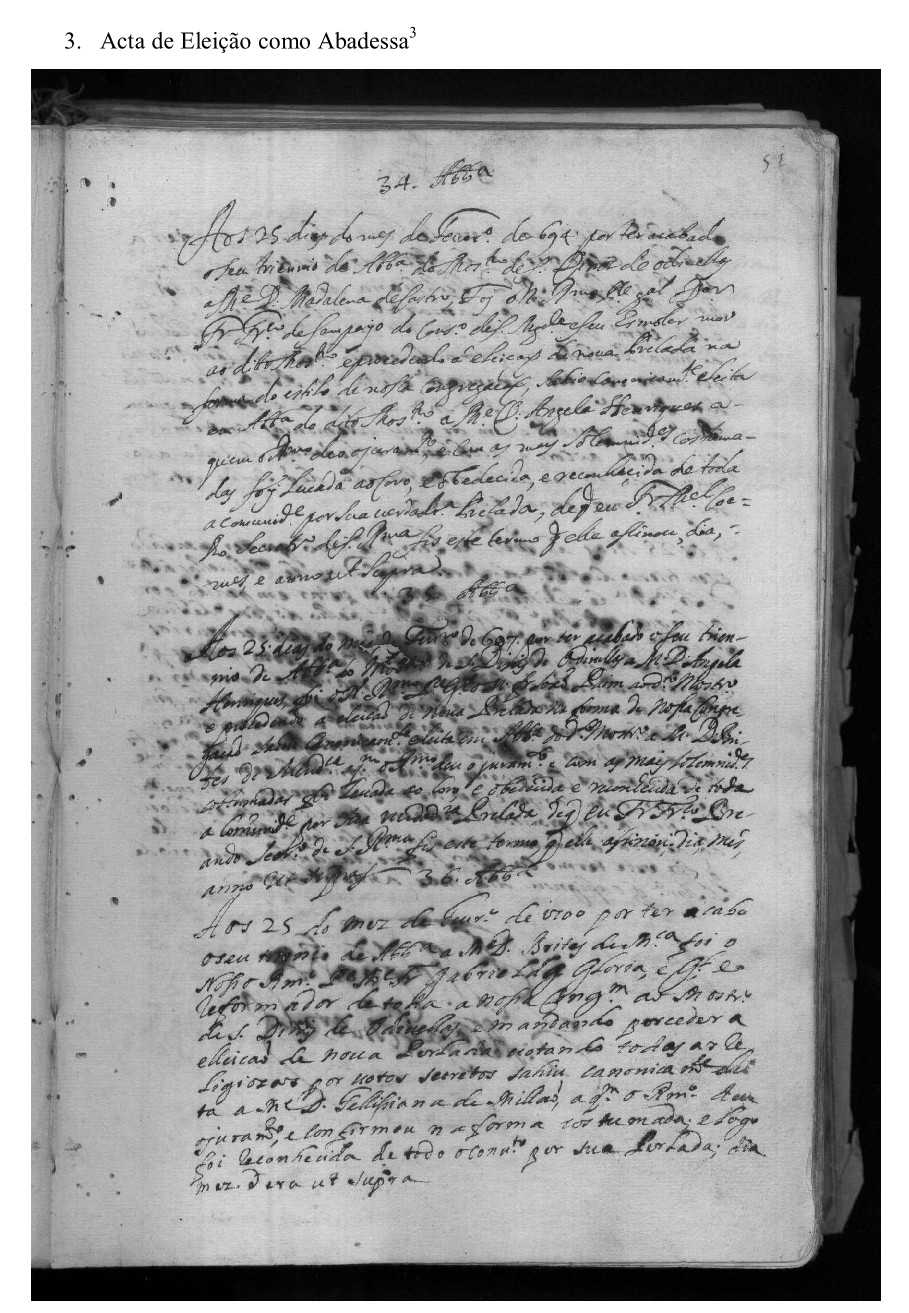 3. Acta de Eleição como Abadessa3
51
34. Abb.a
Aos 25 dias do mes de Feuer.o de 694 por ter acabado
o seu triennio de Abb.a do Mos.ro de S. Dinis de Odivellas
a M.e D. Madalena de Castro, foy o N. R.mo
Fr. Fr.co de Sampayo do Cons.o de S. Mg.de e seu Esmoler mor
ao dito Mos.ro e procedendo á eleiçaõ de noua Prelada na
forma do estilo de nossa Congregaçaõ, sahio canonicam.te eleita
em Abb.a do dito Mos.ro a M.e D. Angela Henriques a-
quem o R.mo deu o juram.to, e com as mais solemnid.es costuma-
das foy leuada ao Coro, e obedecida, e reconhecida de toda
a comunid.e por sua uerdadr.a Prelada, de q eu Fr. M.el Coe-
lho Secretr.o de S. R.ma fis este termo q elle asinou, dia,
mes, e anno ut supra.
35. Abb.a
Aos 25 dias do mes de Feur.ro de 697. por ter acabado o seu trien-
nio de Abb.a do Mostr.o de S. Dinis de Odivellas a M. D. Angela
Henriques, foi o N. R.mo ao d.o Mostro
e procedendo a eleicaõ de noua Prelada na forma de Nossa Congre
gacaõ sahio Canonicam.te eleita em Abb.a do d.o Mostr.o a M. D. Bri-
tes de Mend.ca a q.m o R.mo deu o juram.to e com as mais solemnid.es
costumadas foi leuada ao Coro e obedecida e reconhecida de toda
a Comunid.e por sua uerdad.ra Prelada, de q eu Fr. Fr.co
Secr.o de S. R.ma fis este termo q elle assinou, dia, mes,
anno ut supra 36. Abb.a
Aos 25 do mez de Feur.o de 1700 por ter acabo
o seu triennio de Abb.a a M.e D. Brites de M.ca foi o
Nosso R.mo P.e M.e Fr Gabriel da Gloria, e G.l e
Reformador de toda a nossa Cong.m ao Mostr.o
de S. Dinis de Odiuellas, e mandando porceder a
elleicaõ de noua Perlada uotando todas as Re
ligiozas por uotos secretos sahiu canonicam.te elei
ta a M.e D. Fellisiana de Millaõ, a q.m o R.mo deu
o juram.to, e confirmou na forma costumada, e logo
foi reconhecida de todo o conu.to por sua Perlada; dia
mez. & era ut supra